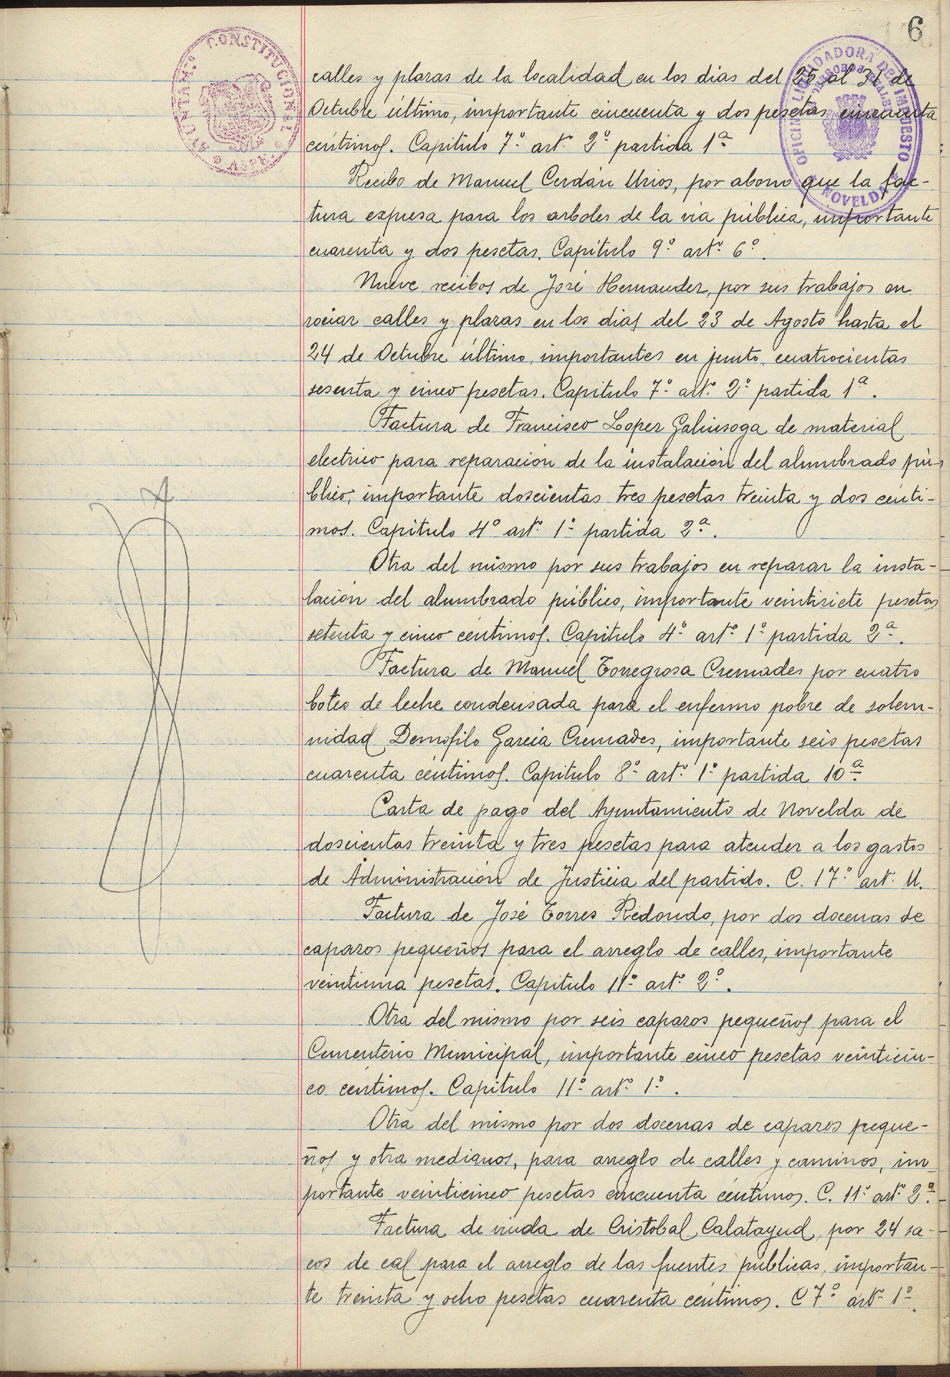 6
AYUNTAMTO CONSTITUCIONAL
OFICINA LIQUIDADORA DEL IMPUESTO
NOVELDA
calles y plazas de la localidad en los dias del 25 al 31 de
Octubre último, importante cincuenta y dos pesetas cincuenta
centimos. Capitulo 7º artº 2º partida 1ª
Recibo de Manuel Cerdán Urios, por abono que la fac-
tura expresa para los arboles de la via pública, importante
cuarenta y dos pesetas. Capitulo 9º artº 6º.
Nueve recibos de José Hernandez, por sus trabajos en
rociar calles y plazas en los dias del 23 de Agosto hasta el
24 de Octubre último, importantes en junto cuatrocientas
sesenta y cinco pesetas. Capitulo 7º artº 2º partida 1ª.
Factura de Francisco Lopez Gahinsoga de material
electrico para reparación de la instalación del alumbrado pú-
blico, importante doscientas tres pesetas treinta y dos cénti-
mos. Capitulo 4º artº 1º partida 2ª.
Otra del mismo por sus trabajos en reparar la insta-
lación del alumbrado público, importante veintisiete pesetas
setenta y cinco céntimos. Capitulo 4º artº 1º partida 2ª.
Factura de Manuel Torregrosa Cremades por cuatro
botes de leche condensada para el enfermo pobre de solem-
nidad Demofilo Garcia Cremades, importante seis pesetas
cuarenta céntimos. Capitulo 8º artº 1º partida 10ª
Carta de pago del Ayuntamiento de Novelda de
doscientas treinta y tres pesetas para atender a los gastos
de Administración de Justicia del partido. C. 17º artº U.
Factura de José Torres Redondo, por dos docenas de
capazos pequeños para el arreglo de calles, importante
veintiuna pesetas. Capitulo 11º artº 2º.
Otra del mismo por seis capazos pequeños para el
Cementerio Municipal, importante cinco pesetas veinticin-
co céntimos. Capitulo 11º artº 1º.
Otra del mismo por dos docenas de capazos peque-
ños y otra medianos, para arreglo de calles y caminos, im-
portante veinticinco pesetas cincuenta céntimos. C. 11º artº 2º.
Factura de viuda de Cristobal Calatayud, por 24 sa-
cos de cal para el arreglo de las fuentes públicas, importan-
te treinta y ocho pesetas cuarenta céntimos. C 7º artº 1º.